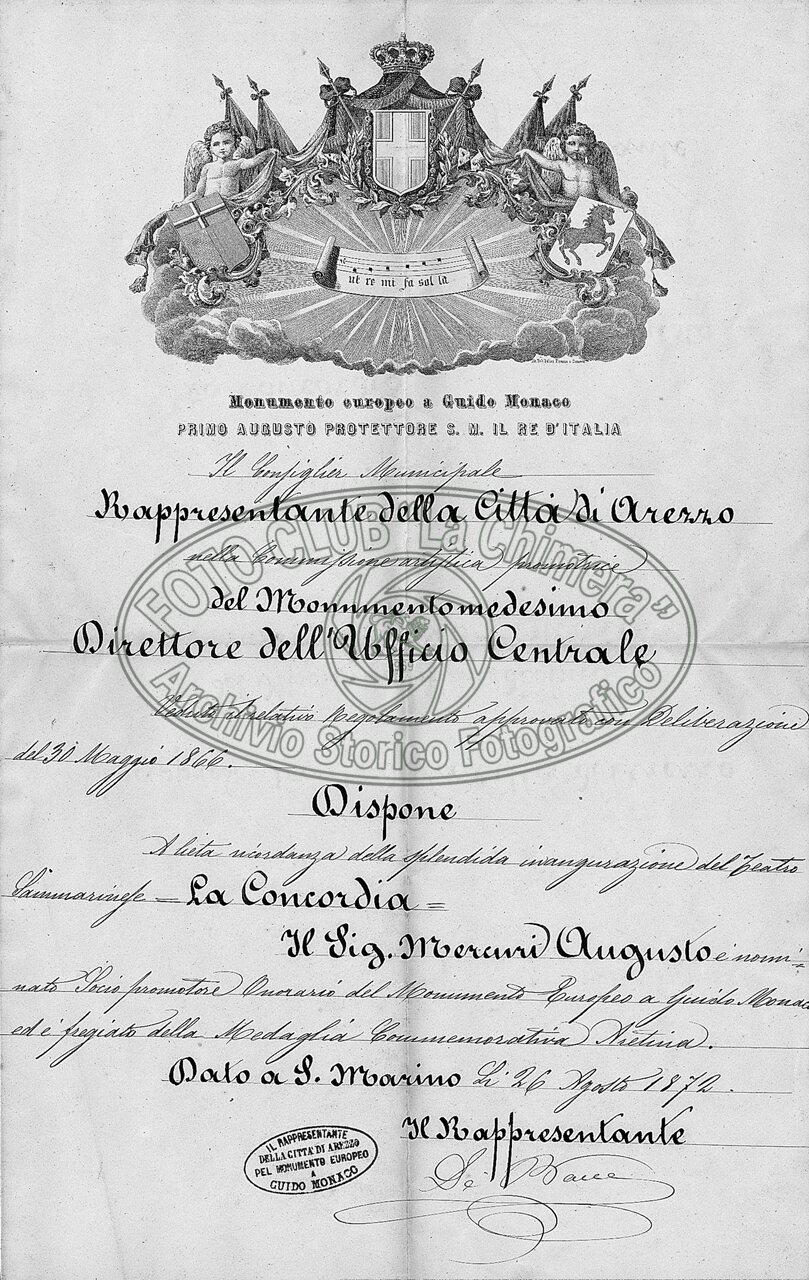 ut re mi fa sol la
Monumento europeo a Guido Monaco
PRIMO AUGUSTO PROTETTORE S. M. IL RE D'ITALIA
Il Consiglier Municipale
Rappresentante della Città di Arezzo
nella Commissione artistica promotrice
del Monumento medesimo
Direttore dell'Ufficio Centrale
Veduto il relativo Regolamento approvato con Deliberazione
del 30 Maggio 1866.
Dispone
A lieta ricordanza della splendida inaugurazione del Teatro
Sammarinese = La Concordia =
Il Sig. Mercuri Augusto è nomi=
nato Socio promotore Onorario del Monumento Europeo a Guido Monaco
ed è fregiato della Medaglia Commemorativa Aretina.
Dato a S. Marino Li 26 Agosto 1872.
Il Rappresentante
IL RAPPRESENTANTE
DELLA CITTÀ DI AREZZO
PEL MONUMENTO EUROPEO
A
GUIDO MONACO
FOTO CLUB "La Chimera"
Archivio Storico Fotografico